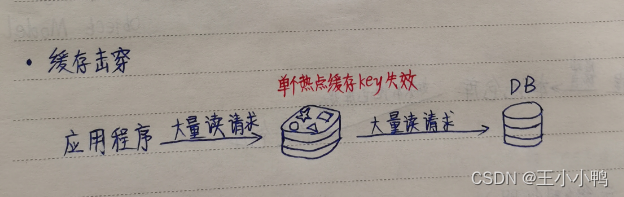 • 缓存击穿
单个热点缓存key失效
DB
应用程序 大量读请求 大量读请求
CSDN @王小小鸭